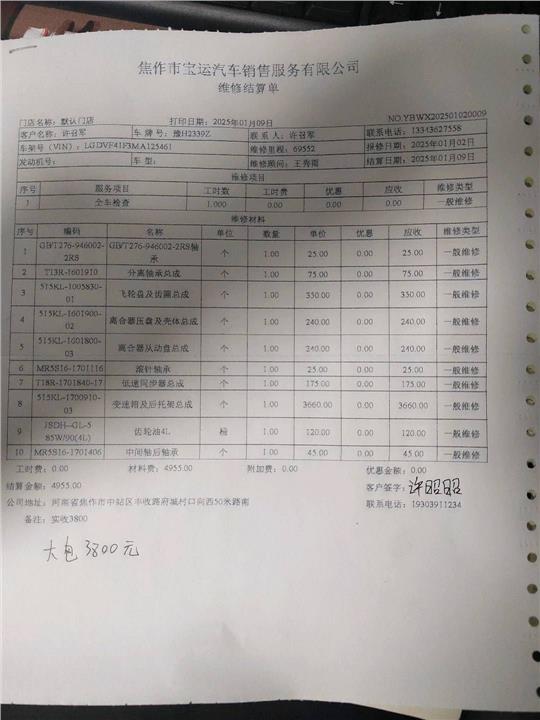 焦作市宝运汽车销售服务有限公司
维修结算单
门店名称：默认门店 打印日期：2025年01月09日 NO.YBWX202501020009
客户名称：许召军 车 牌 号：豫H2339Z 联 系 人：许召军 联系电话：13343627558
车架号（VIN）：LGDVF41F3MA125461 维修里程：69552 报修日期：2025年01月02日
发动机号： 车 型： 维修顾问：王秀雨 结算日期：2025年01月09日
维修项目
序号 服务项目 工时数 工时费 优惠 应收 维修类型
1 全车检查 1.000 0.00 0.00 0.00 一般维修
维修材料
序号 编码 名称 单位 数量 单价 优惠 应收 维修类型
1 GB/T276-946002-2RS GB/T276-946002-2RS轴承 个 1.00 25.00 0.00 25.00 一般维修
2 T13R-1601910 分离轴承总成 个 1.00 75.00 0.00 75.00 一般维修
3 515KL-1005830-01 飞轮盘及齿圈总成 个 1.00 350.00 0.00 350.00 一般维修
4 515KL-1601900-02 离合器压盘及壳体总成 个 1.00 240.00 0.00 240.00 一般维修
5 515KL-1601800-03 离合器从动盘总成 个 1.00 240.00 0.00 240.00 一般维修
6 MR5S16-1701116 滚针轴承 个 1.00 25.00 0.00 25.00 一般维修
7 T18R-1701840-17 低速同步器总成 个 1.00 175.00 0.00 175.00 一般维修
8 515KL-1700910-03 变速箱及后托架总成 个 1.00 3660.00 0.00 3660.00 一般维修
9 JSDH-GL-5 85W/90(4L) 齿轮油4L 1.00 120.00 0.00 120.00 一般维修
10 MR5S16-1701406 中间轴后轴承 个 1.00 45.00 0.00 45.00 一般维修
工时费：0.00 材料费：4955.00 附加费：0.00 优惠金额：0.00
结算金额：4955.00 客户签字：许昭昭
公司地址：河南省焦作市中站区丰收路府城村口向西50米路南 联系电话：19303911234
备注：实收3800
大包3800元